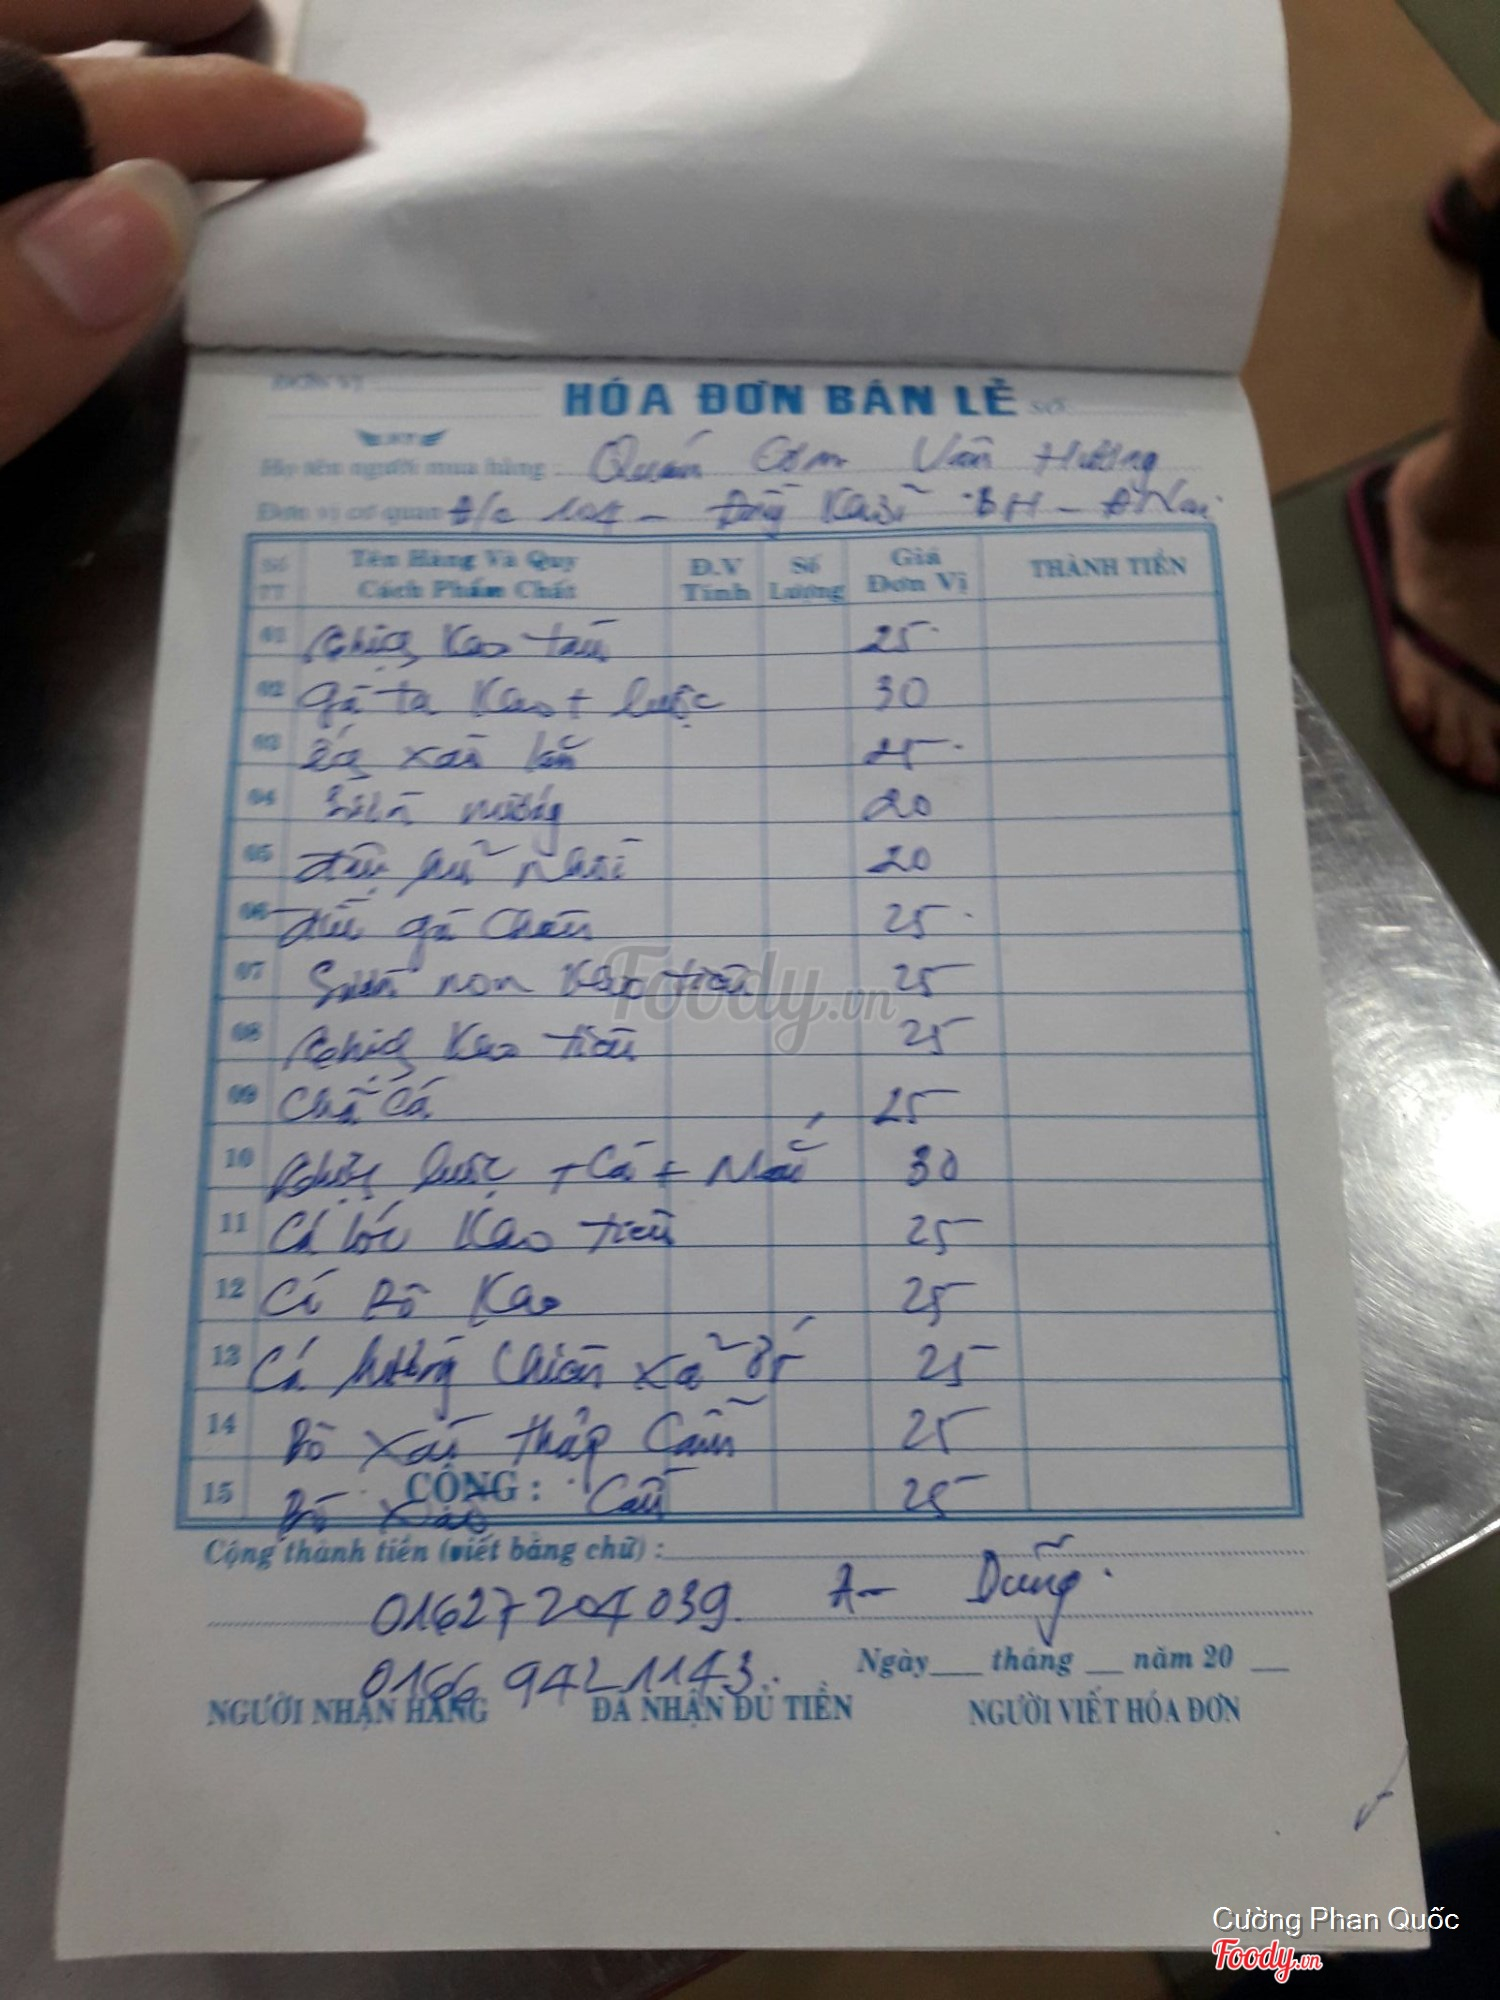 ĐƠN VỊ
HÓA ĐƠN BÁN LẺ SỐ
Họ tên người mua hàng: Quán Cơm Vân Hường
Đơn vị cơ quan Đ/c 104 - Đồng Khởi BH - ĐNai
Số TT Tên Hàng Và Quy Cách Phẩm Chất Đ.V Tính Số Lượng Giá Đơn Vị THÀNH TIỀN
01 Kho tàu 25
02 gà ta Kho + luộc 30
03 xào lăn 25
04 Sườn nướng 20
05 đậu hủ nhồi 20
06 gà Chiên 25
07 Sườn non Kho tiêu 25
08 Kho tiêu 25
09 Chả Cá 25
10 luộc + Cà + Mắm 30
11 Cá lóc Kho tiêu 25
12 Cá Rô Kho 25
13 Cá hường Chiên Xả ớt 25
14 Bò xào thập Cẩm 25
15 Bò xào Cần 25
CỘNG:
Cộng thành tiền (viết bằng chữ):
01627204039. A- Dũng.
0166 9421143.
Ngày tháng năm 20
NGƯỜI NHẬN HÀNG ĐÃ NHẬN ĐỦ TIỀN NGƯỜI VIẾT HÓA ĐƠN
Foody.vn
Cường Phan Quốc
Foody.vn